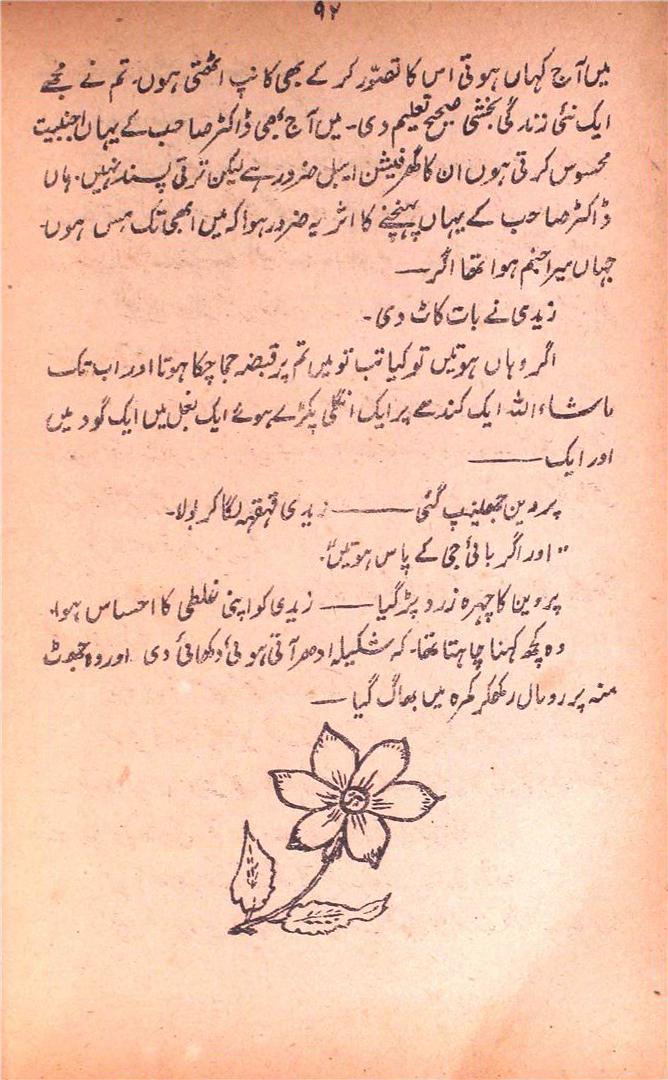 ۹۲
میں آج کہاں ہوتی اس کا تصوّر کر کے بھی کانپ اٹھتی ہوں۔ تم نے مجھے
ایک نئی زندگی بخشی صحیح تعلیم دی۔ میں آج بھی ڈاکٹر صاحب کے یہاں اجنبیت
محسوس کرتی ہوں ان کا گھر فیشن ایبل ضرور ہے لیکن ترقی پسند نہیں۔ ہاں
ڈاکٹر صاحب کے یہاں پہنچنے کا اثر یہ ضرور ہوا کہ میں ابھی تک مس ہوں۔
جہاں میرا جنم ہوا تھا اگر —
زیدی نے بات کاٹ دی۔
اگر وہاں ہوتیں تو کیا تب تو میں تم پر قبضہ جما چکا ہوتا اور اب تک
ماشاء اللہ ایک کندھے پر ایک انگلی پکڑے ہوئے ایک بغل میں ایک گود میں
اور ایک ———
پروین جھینپ گئی ——— زیدی قہقہہ لگا کر بولا۔
" اور اگر بائی جی کے پاس ہوتیں"۔
پروین کا چہرہ زرد پڑ گیا —— زیدی کو اپنی غلطی کا احساس ہوا۔
وہ کچھ کہنا چاہتا تھا۔ کہ شکیلہ ادھر آتی ہوئی دکھائی دی اور وہ جھوٹ
منہ پر رومال رکھکر کمرہ میں بھاگ گیا —